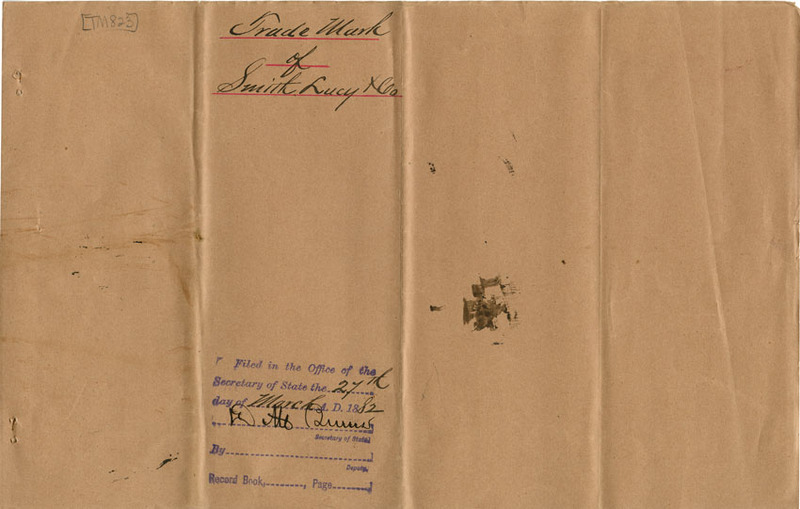 [TM823]
Trade Mark
of
Smith, Lucy & Co
Filed in the Office of the
Secretary of State the 27th
day of March A. D. 1882
Secretary of State
By
Deputy
Record Book, , Page